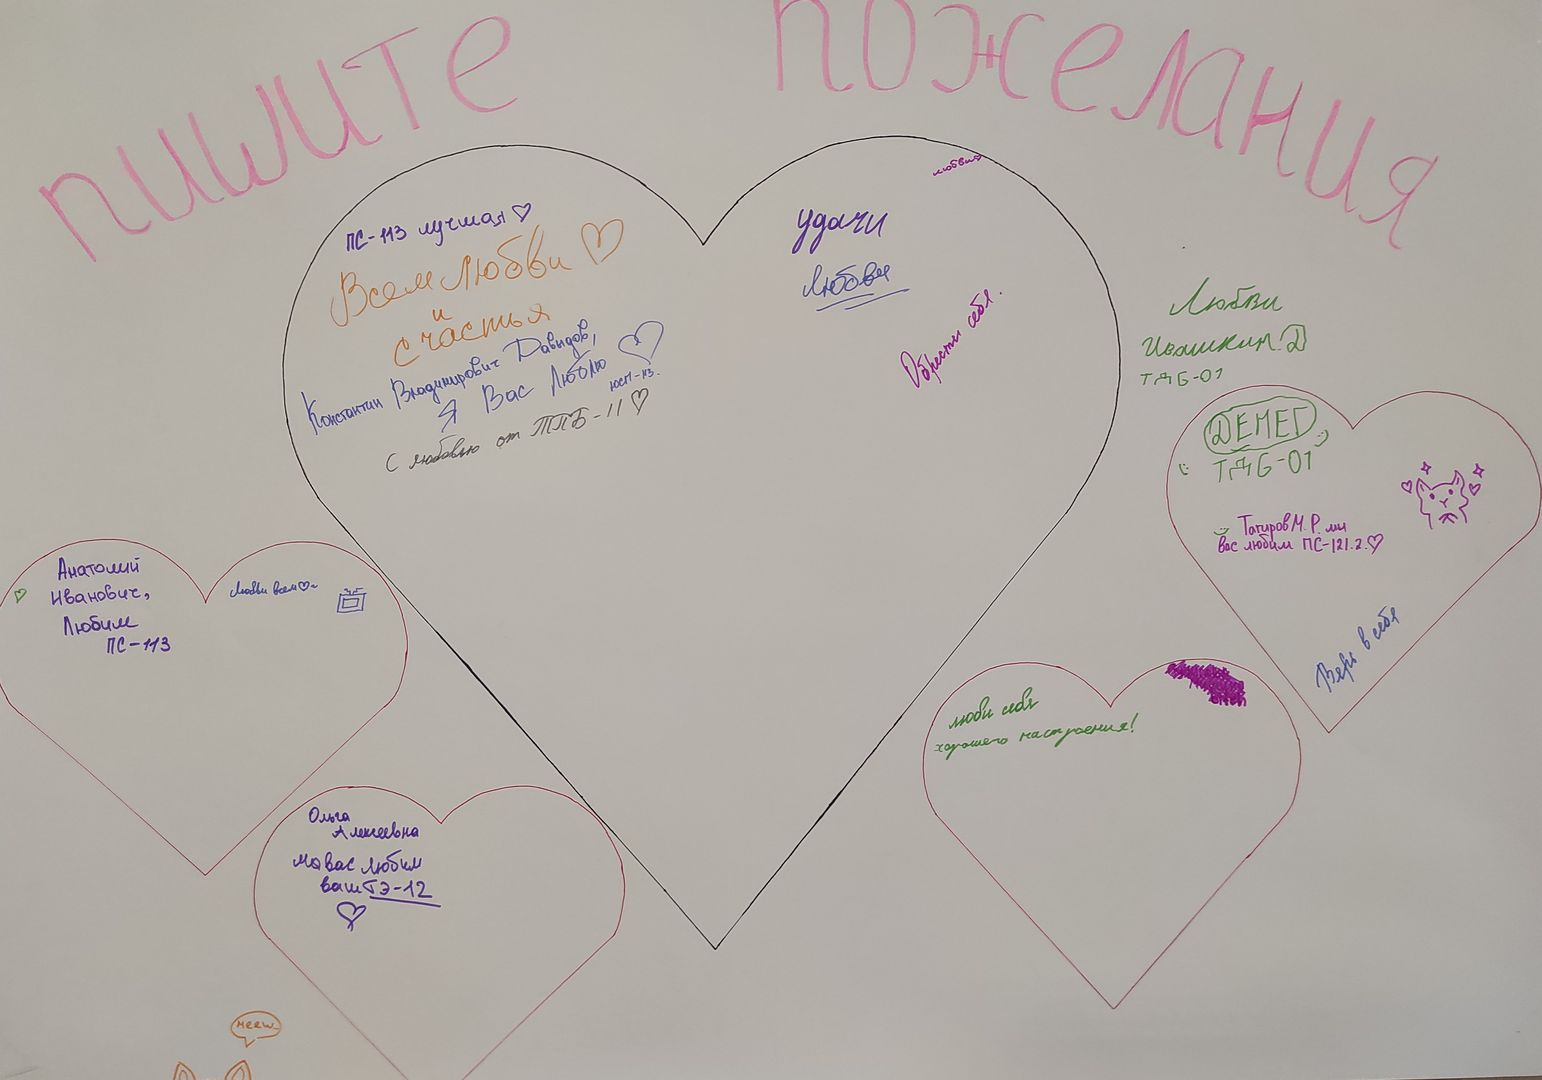 пишите пожелания
любви
ПС-113 лучшая
Всем Любви
и
счастья
Константин Владимирович Давыдов,
Я Вас Люблю
с любовью от ТПБ-11
удачи
Любви
Обрести себя.
Любви
Ивашкин.Д
ТДБ-01
ДЕНЕГ
ТДБ-01
Тагиров М.Р. мы
вас любим ПС-121.2.
Верь в себя
Анатолий
Иванович,
Любим
ПС-113
Любви всем
люби себя
хорошего настроения!
Ольга
Алексеевна
мы вас любим
ваш ТЭ-12
meew